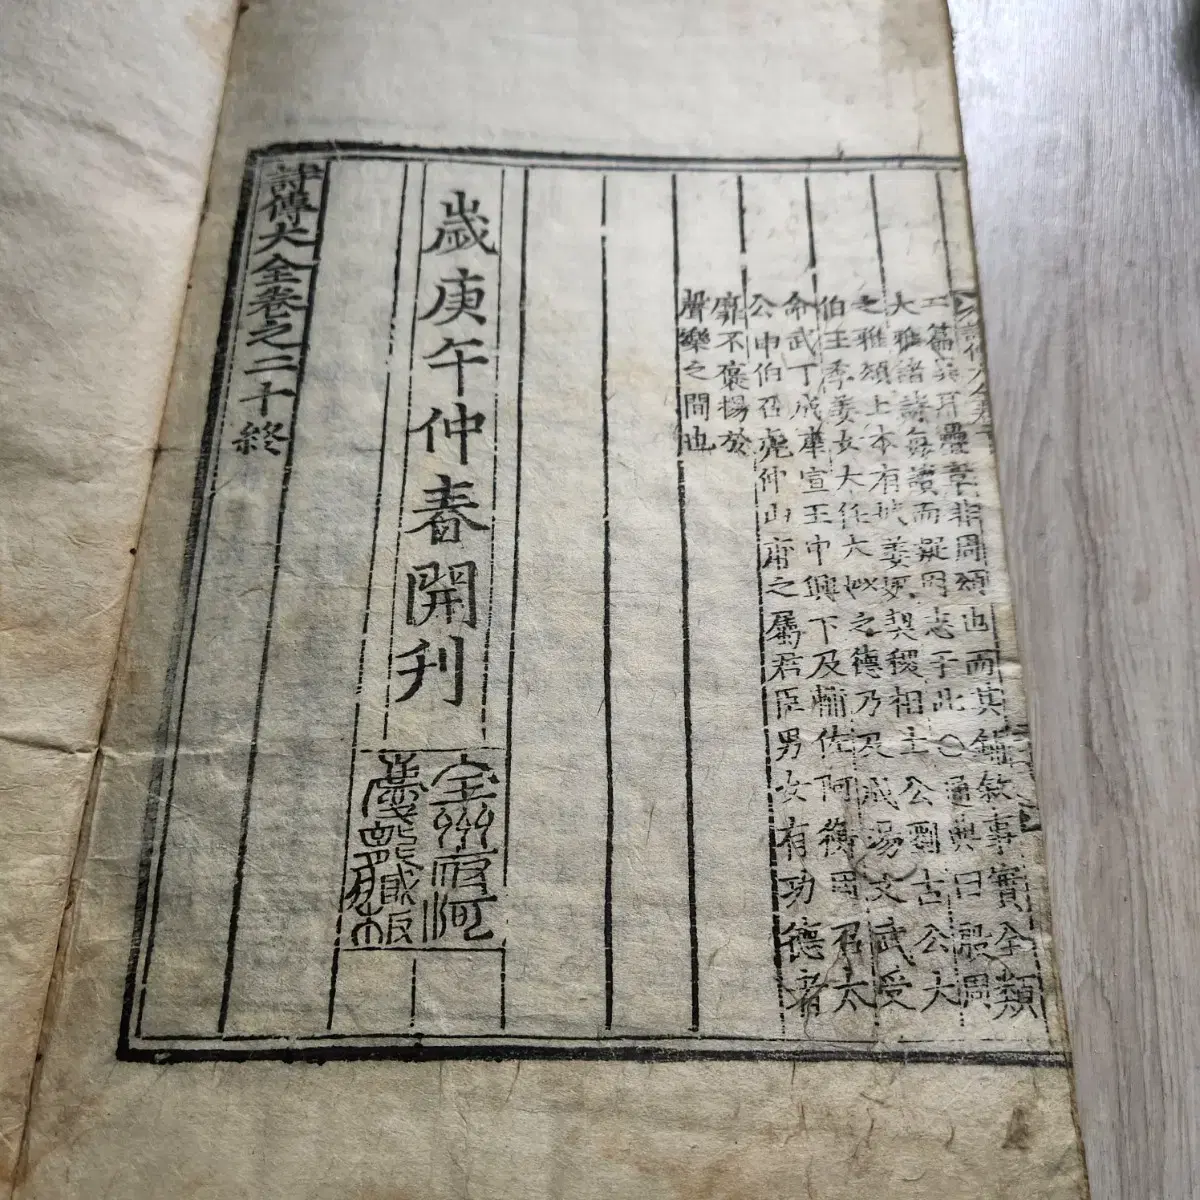 二篇與丹疊章非周頌也而其鋪敘事實全類
大雅諸詩每讀而疑因志于此〇通典曰殷周
之雅頌上本有娀姜嫄契稷相土公劉古公大
伯王季姜女大任大姒之德乃及成湯文武受
命武丁成康宣王中興下及輔佐阿衡周召太
公申伯召虎仲山甫之屬君臣男女有功德者
靡不褒揚於
聲樂之間也
歲庚午仲春開刊
全州府河
慶龍藏板
詩傳大全卷之二十終